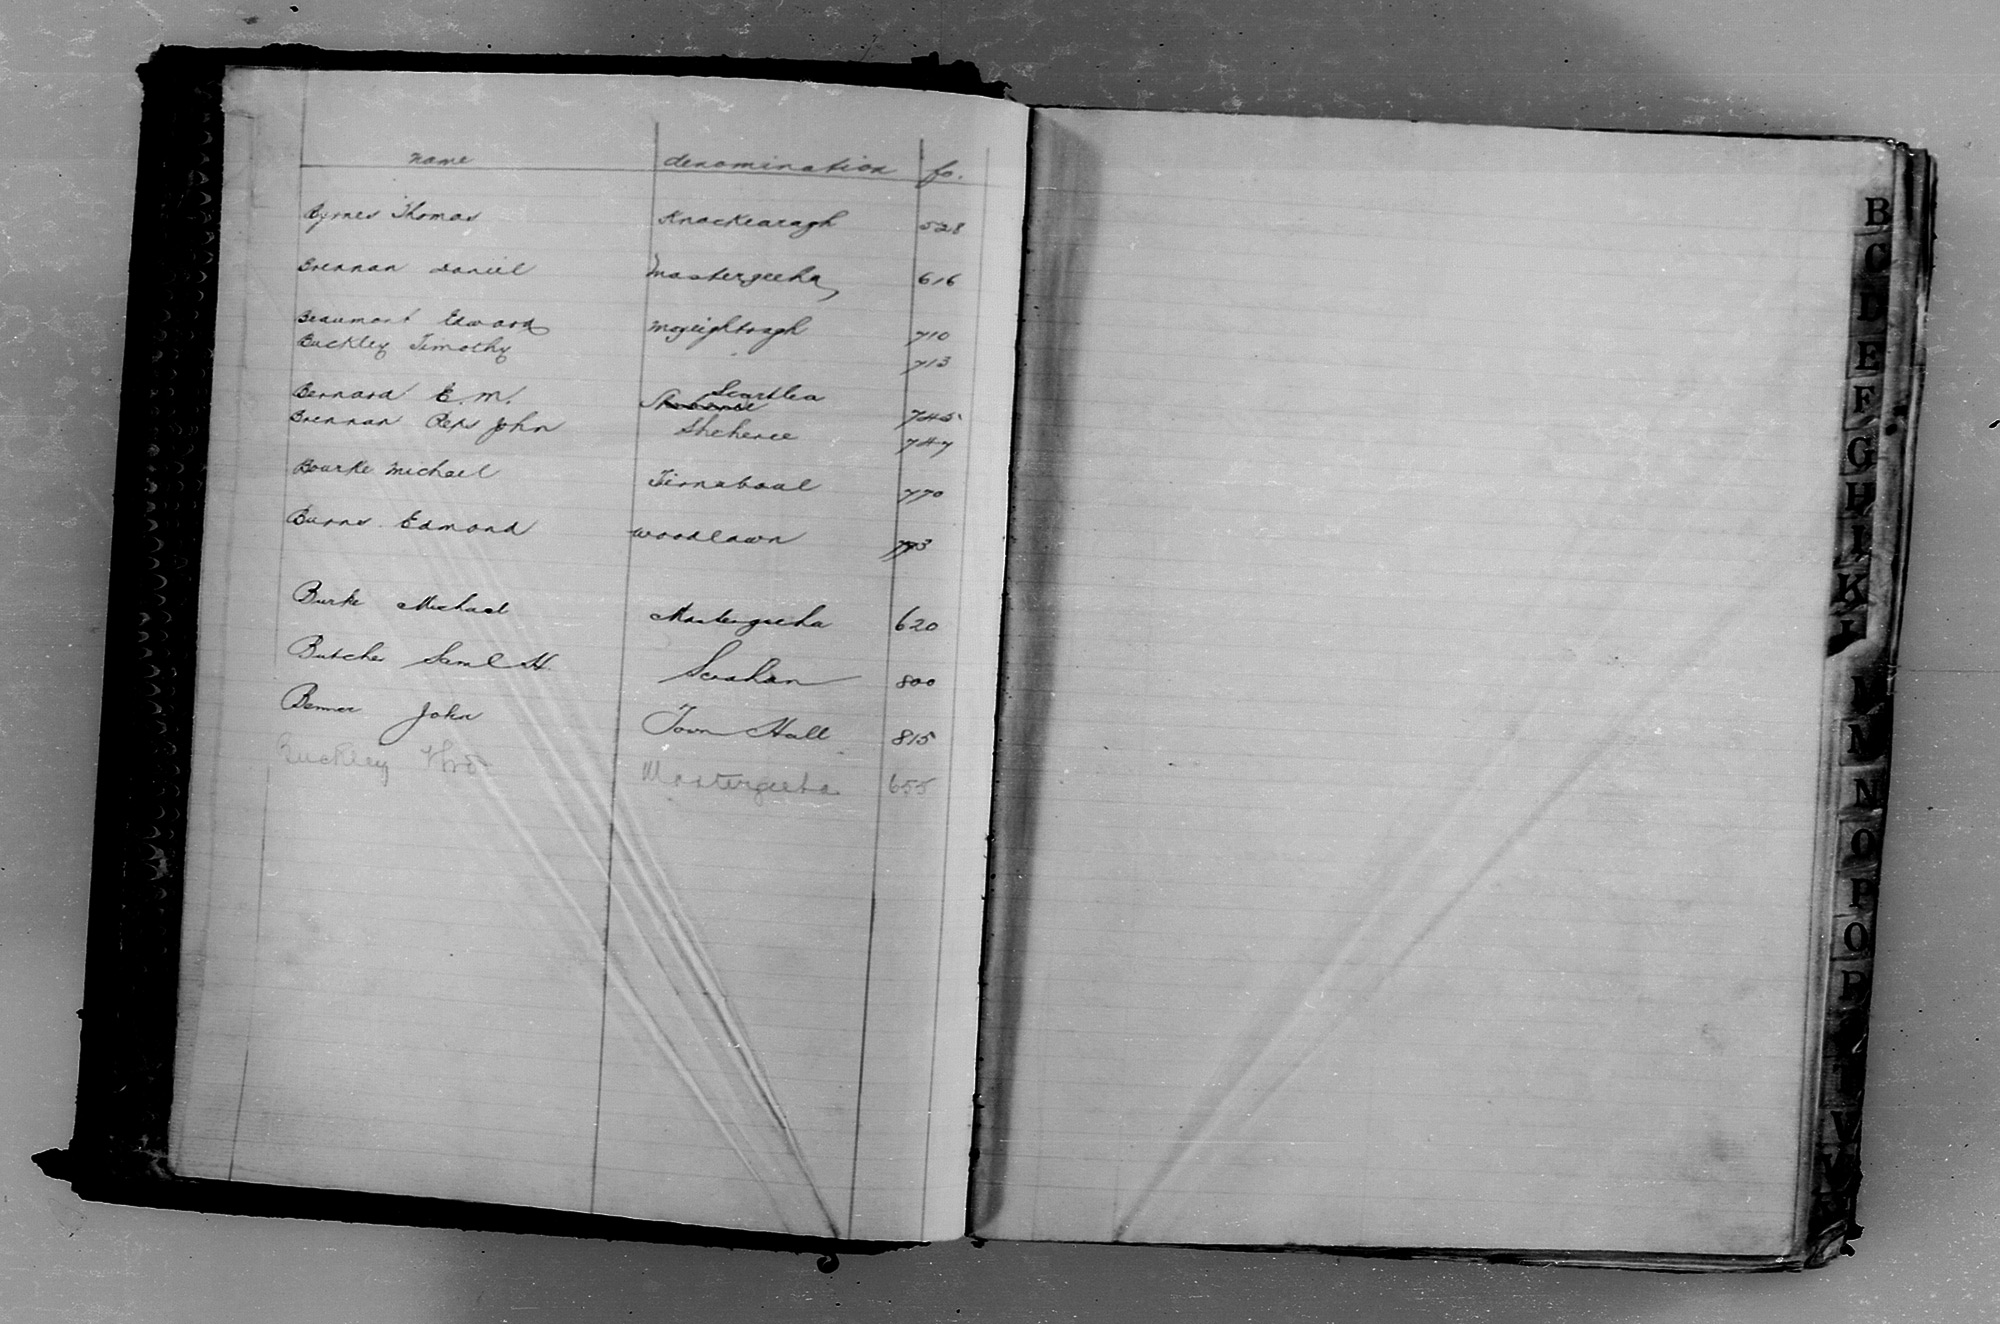 name denomination fo.
Byrnes Thomas Knockearagh 528
Brennan Daniel Mastergeeha 616
Beaumont Edward Moyeightragh 710
Buckley Timothy " 713
Bernard E. M. Scartlea 745
Brennan Reps John Sheheree 747
Bourke Michael Tiernaboul 770
Burns Edmond Woodlawn 793
Burke Michael Mastergeeha 620
Butcher Saml H. Scrahan 800
Benner John Town Hall 815
Buckley Thos Mastergeeha 655
B
C
D
E
F
G
H
I
K
L
M
N
O
P